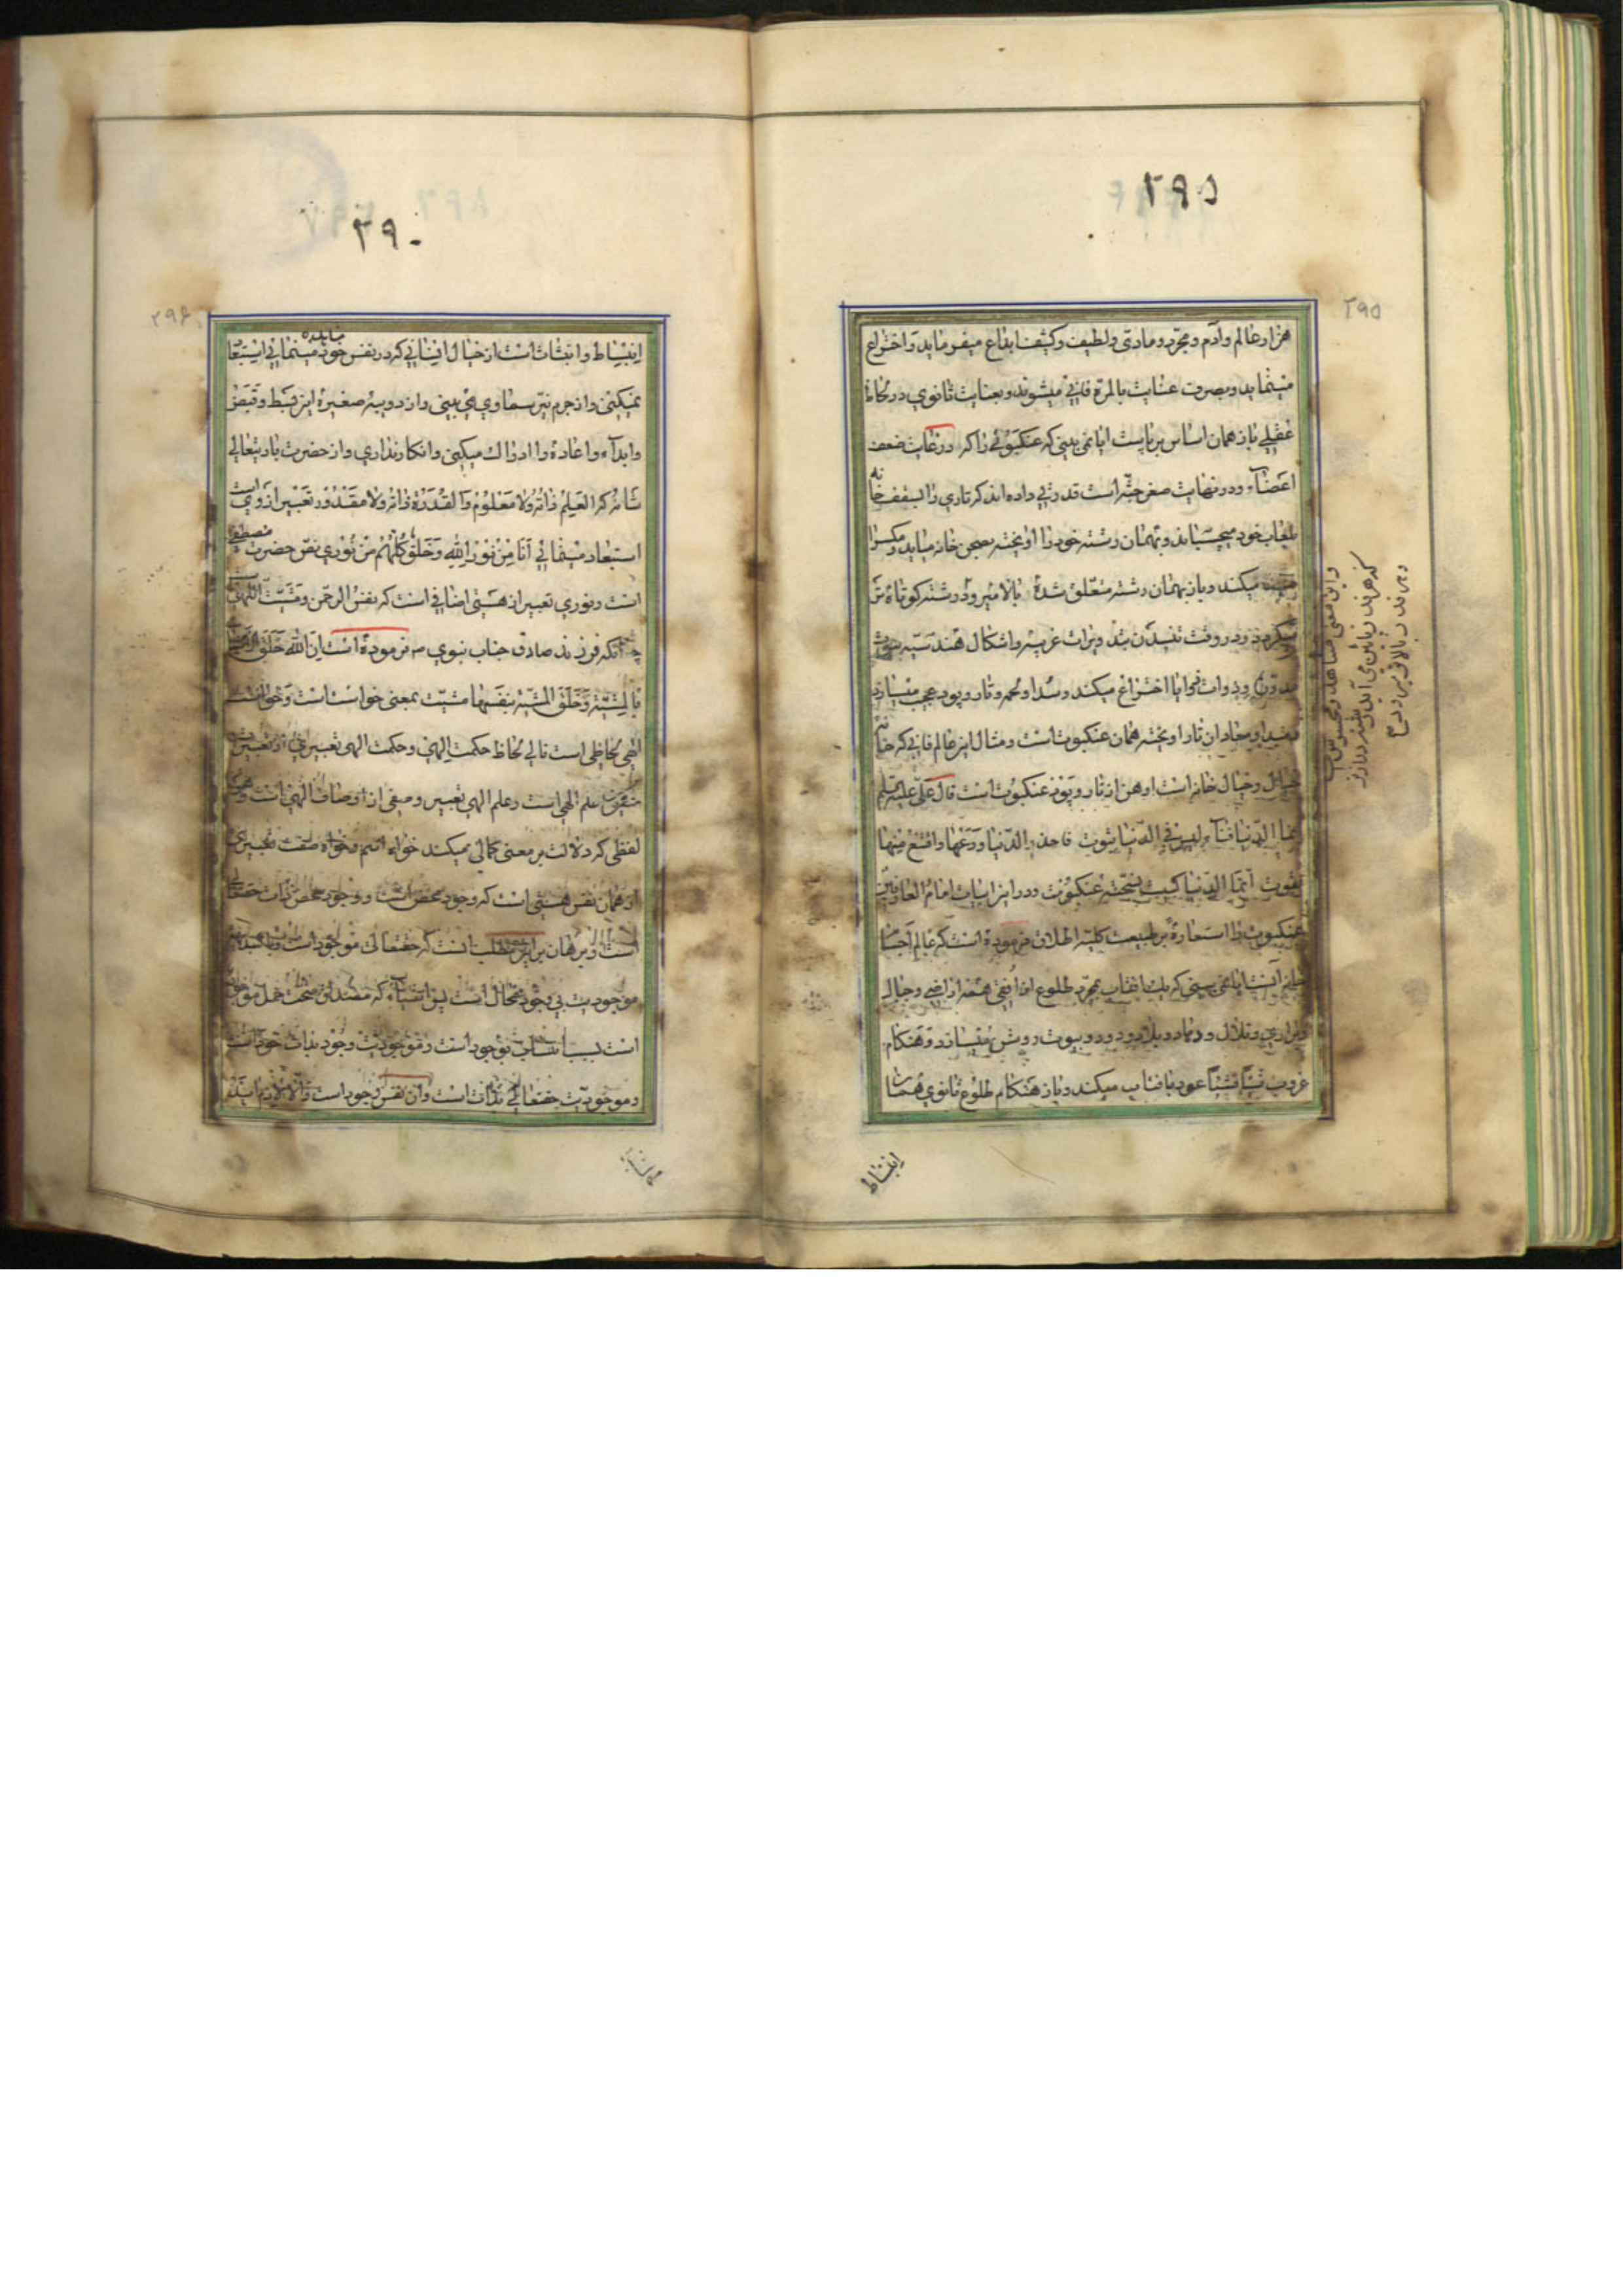 ۲۹۵
۲۹۵
هزار عالم و آدم و مجرد و مادی و لطیف و کثیف ابداع میفرماید و اختراع
مینماید و بصرف عنایت بالمرة فانی میشوند و بعنایت ثانوی در لحاظ
عقلی باز همان اساس برپاست ایا نمی بینی که عنکبوتی را که در غایت ضعف
اعضاء و در نهایت صغر جثه است قدرتی داده اند که تاری را بسقف خانه
بلعاب خود میچسباند و بهمان رشته خود را آویخته بصحن خانه میاید و مکسرا
میکند و باز بهمان رشته متعلق شده بالا میرود و رشته کوتاه تر
میگردد و در وقت تنیدن بتدویرات غریبه و اشکال هندسیه بیوت
بدون ادوات نجوایا اختراع میکند و سدا و لحمه و تار و پود عجب میسازد
تار او بخته همان عنکبوت است و مثال این عالم فانی که خانه
خیال و خیال خانه است اوهن از تار و پود عنکبوت است قال علی علیه السلم
انما الدنیا فناء لیس فی الدنیا ثبوت فاحذر الدنیا و دعها و اقنع منها
بقوت انما الدنیا کبیت نسجته عنکبوت و در این ابیات امام العارفین
عنکبوت را استعارة بر طبیعت کلیه اطلاق فرموده است که عالم اجسام
ایا نمی بینی که یک افتاب بمجرد طلوع از افقی همه اراضی و جبال
و براری و تلال و دمار و بلاد و دور و بیوت روشن میسازد و هنکام
غروب شیئا فشیئا عود بافتاب میکند و باز هنکام طلوع ثانوی همان
انبساط
و این معنی مشاهد و محسوس است
که هر قدر پائین می آید رشته دراز تر
و هر قدر بالا می رود
۲۹۰
۲۹۶
انبساط و انبثاث است از خیال انسانی که در نفس خود مینمائی استبعاد
نمیکنی و از جرم نیر سماوی می بینی و از دویبه صغیره این قبط و قبض
و ابداء و اعاده را ادراک میکنی و انکار نداری و از حضرت باریتعالی
شانه که العلم ذاته و لا معلوم و القدرة ذاته و لا مقدور تعبیر از وی است
استبعاد مینمائی أنا من نور الله و خلق کلهم من نوری نص حضرت مصطفی
است و نوری تعبیر از هستی اضافی است که نفس الرحمن و مشیت اللهی است
چنانکه فرزند صادق جناب نبوی ص فرموده است ان الله خلق الاشیاء
بالمشیة و خلق المشیة بنفسها مشیت بمعنی خواست است و خواست
الهی لحاظی است تالی لحاظ حکمت الهی و حکمت الهی تعبیر اوی از تعبیرات
علم الهی است و علم الهی تعبیر وصفی از اوصاف الهی است و هر
لفظی که دلالت بر معنی کمالی میکند خواه اسم و خواه صفت تعبیری
از همان نفس هستی است که وجود محض است و وجود محض ذات حقتعالی
است و برهان بر این مطلب آنست که حقتعالی موجود است
موجودیت بی وجود محال است پس اشیاء که مصداق صحت حمل موجود
است بسبب انتساب بوجود است و موجودیت وجود بذات خود است
و موجودیت حقتعالی بذات است و آن نفس وجود است و الا لازم آید